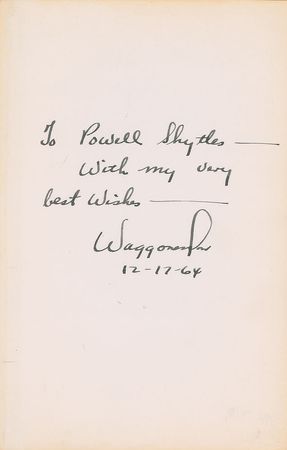 To Powell Shytles —
With my very
best Wishes —
12-17-64